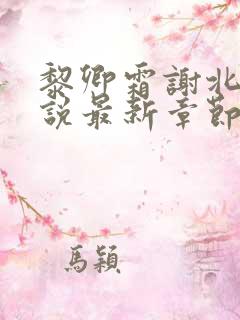 黎卿霜謝北
說最新章節
馬穎